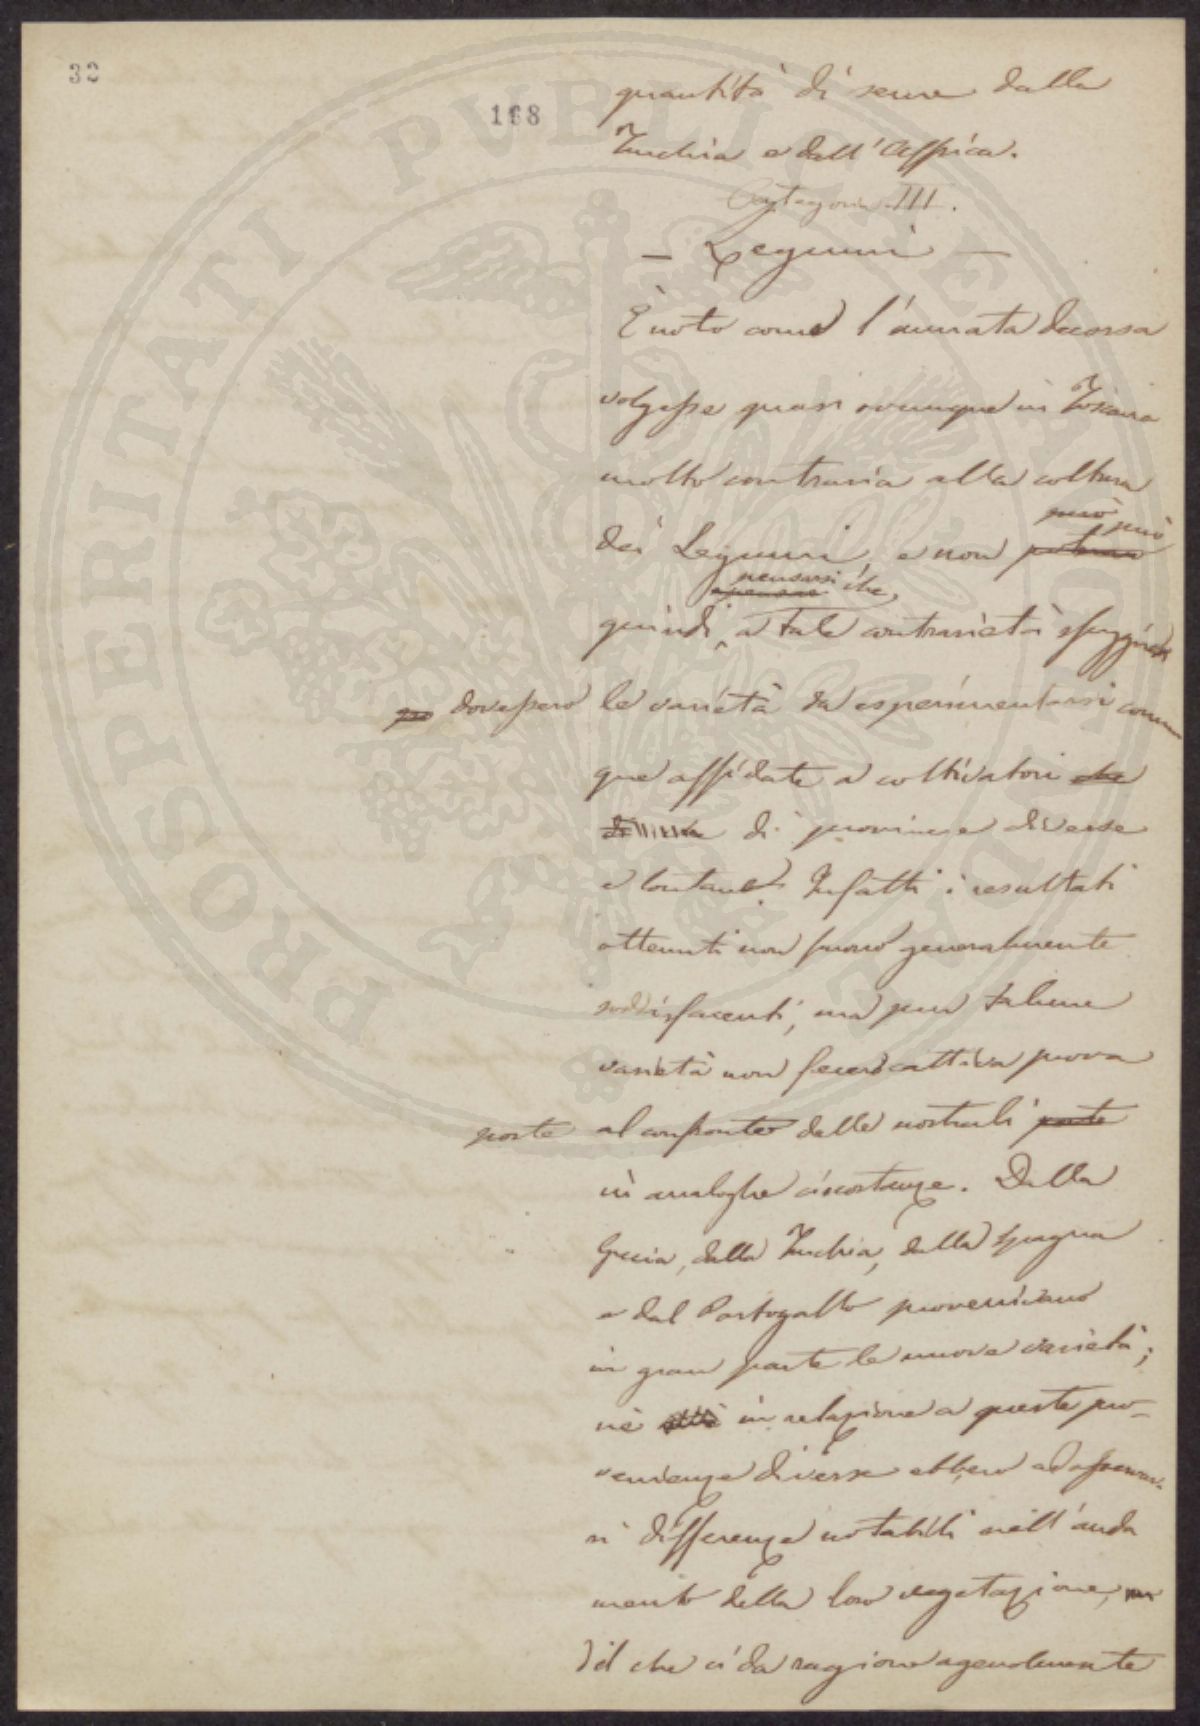 32
168
quantità di seme dalla
Turchia e dall'Affrica.
Categoria III.
— Legumi —
È noto come l'annata decorsa
volgesse quasi ovunque in Toscana
molto contraria alla coltura
può può
dei Legumi, e non poteva
pensarsi che,
quindi a tale contrarietà sfuggire
dovessero le varietà da esperimentarsi comun
que affidate a coltivatori che
di provincie diverse
e lontane. Infatti i resultati
ottenuti non furono generalmente
soddisfacenti, ma pur talune
varietà non fecero cattiva prova
poste al confronto delle nostrali poste
in analoghe circostanze. Dalla
Grecia, dalla Turchia, dalla Spagna
e dal Portogallo provenivano
in gran parte le nuove varietà;
nè in relazione a queste pro-
venienze diverse ebbero ad osservar-
si differenze notabili nell'anda
mento della loro vegetazione,
il che ci dà ragione agevolmente
PROSPERITATI PVBLICAE AVGENDAE